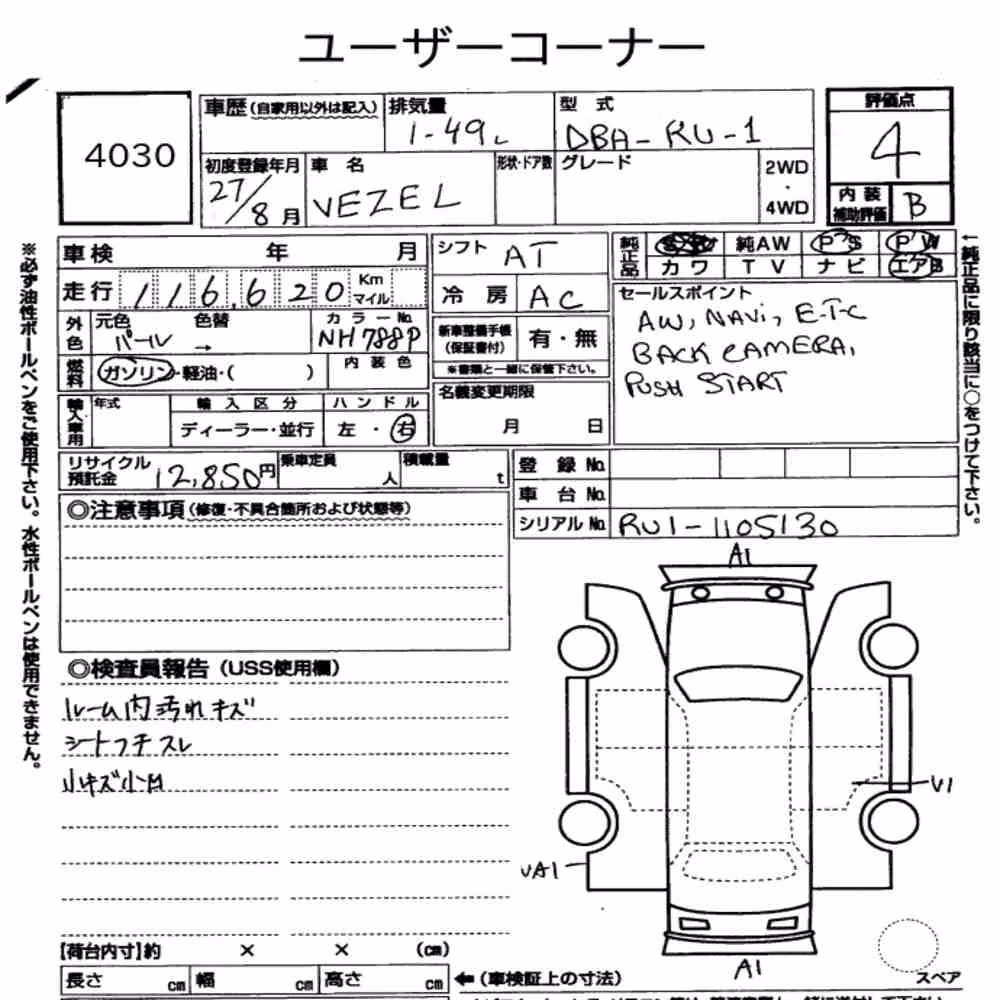 ユーザーコーナー
4030
車歴(自家用以外は記入) 排気量 1-49L 型 式 DBA-RU-1
評価点 4
内装補助評価 B
初度登録年月 27/8月 車 名 VEZEL 形状・ドア数 グレード 2WD・4WD
車検 年 月
シフト AT
純正品 純AW PS PW
カワ TV ナビ エアB
走行 116,620 Km マイル
冷房 AC
外色 元色 パール 色替 → カラーNo. NH788P
新車整備手帳(保証書付) 有・無
※書類と一緒に保管下さい。
燃料 ガソリン・軽油・( ) 内装色
セールスポイント
AW, NAVi, E-T-C
BACK CAMERA,
PUSH START
名義変更期限 月 日
輸入車用 年式 輸入区分 ディーラー・並行 ハンドル 左・右
リサイクル預託金 12,850円 乗車定員 人 積載量 t
登録No.
車台No.
シリアルNo. RU1-1105130
◎注意事項(修復・不具合箇所および状態等)
◎検査員報告(USS使用欄)
ルーム内汚れキズ
シートフチスレ
小キズ小凹
A1
V1
VA1
A1
スペア
【荷台内寸】約 × × (cm)
長さ cm 幅 cm 高さ cm ←(車検証上の寸法)
※必ず油性ボールペンをご使用下さい。水性ボールペンは使用できません。
←純正品に限り該当に○をつけて下さい。